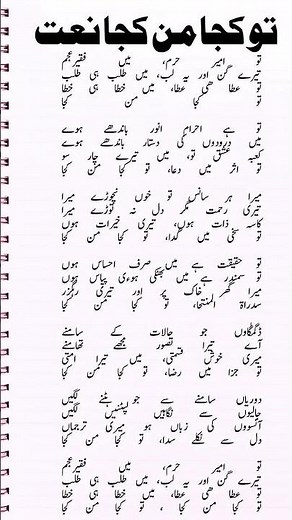 تو کجا من کجا نعت
تو امیر حرم، میں فقیر عجم
تیرے گن اور یہ لب، میں طلب ہی طلب
تو عطا ھی عطا، میں خطا ہی خطا
تو کجا من کجا
تو ہے احرام انور باندھے ہوے
میں درودوں کی دستار باندھے ہوے
کعبہ عشق تو، میں تیرے چار سو
تو اثر میں دعا، تو کجا من کجا
میرا ہر سانس تو خوں نچوڑے میرا
تیری رحمت مگر دل نہ توڑے میرا
کاسہ ذات ہوں، تیری خیرات ہوں
تو سخی میں گدا، تو کجا من کجا
تو حقیقت ہے میں صرف احساس ہوں
تو سمندر ہے میں بھٹکی ہوءی پیاس ہوں
میرا گھر خاک پر اور تیری رہگزر
سدراة المنتہا، تو کجا من کجا
ڈگمگاوں جو حالات کے سامنے
آے تیرا تصور مجھے تھامنے
میری خوش قسمتی، میں تیرا امتی
تو جزا میں رضا، تو کجا من کجا
دوریاں سامنے سے جو ہٹنے لگیں
جالیوں سے نگاہیں لپٹنیں لگیں
آنسووں کی زباں ہو میری ترجماں
دل سے نکلے سدا، تو کجا من کجا
تو امیر حرم، میں فقیر عجم
تیرے گن اور یہ لب، میں طلب ہی طلب
تو عطا ھی عطا، میں خطا ہی خطا
تو کجا من کجا ، تو کجا من کجا